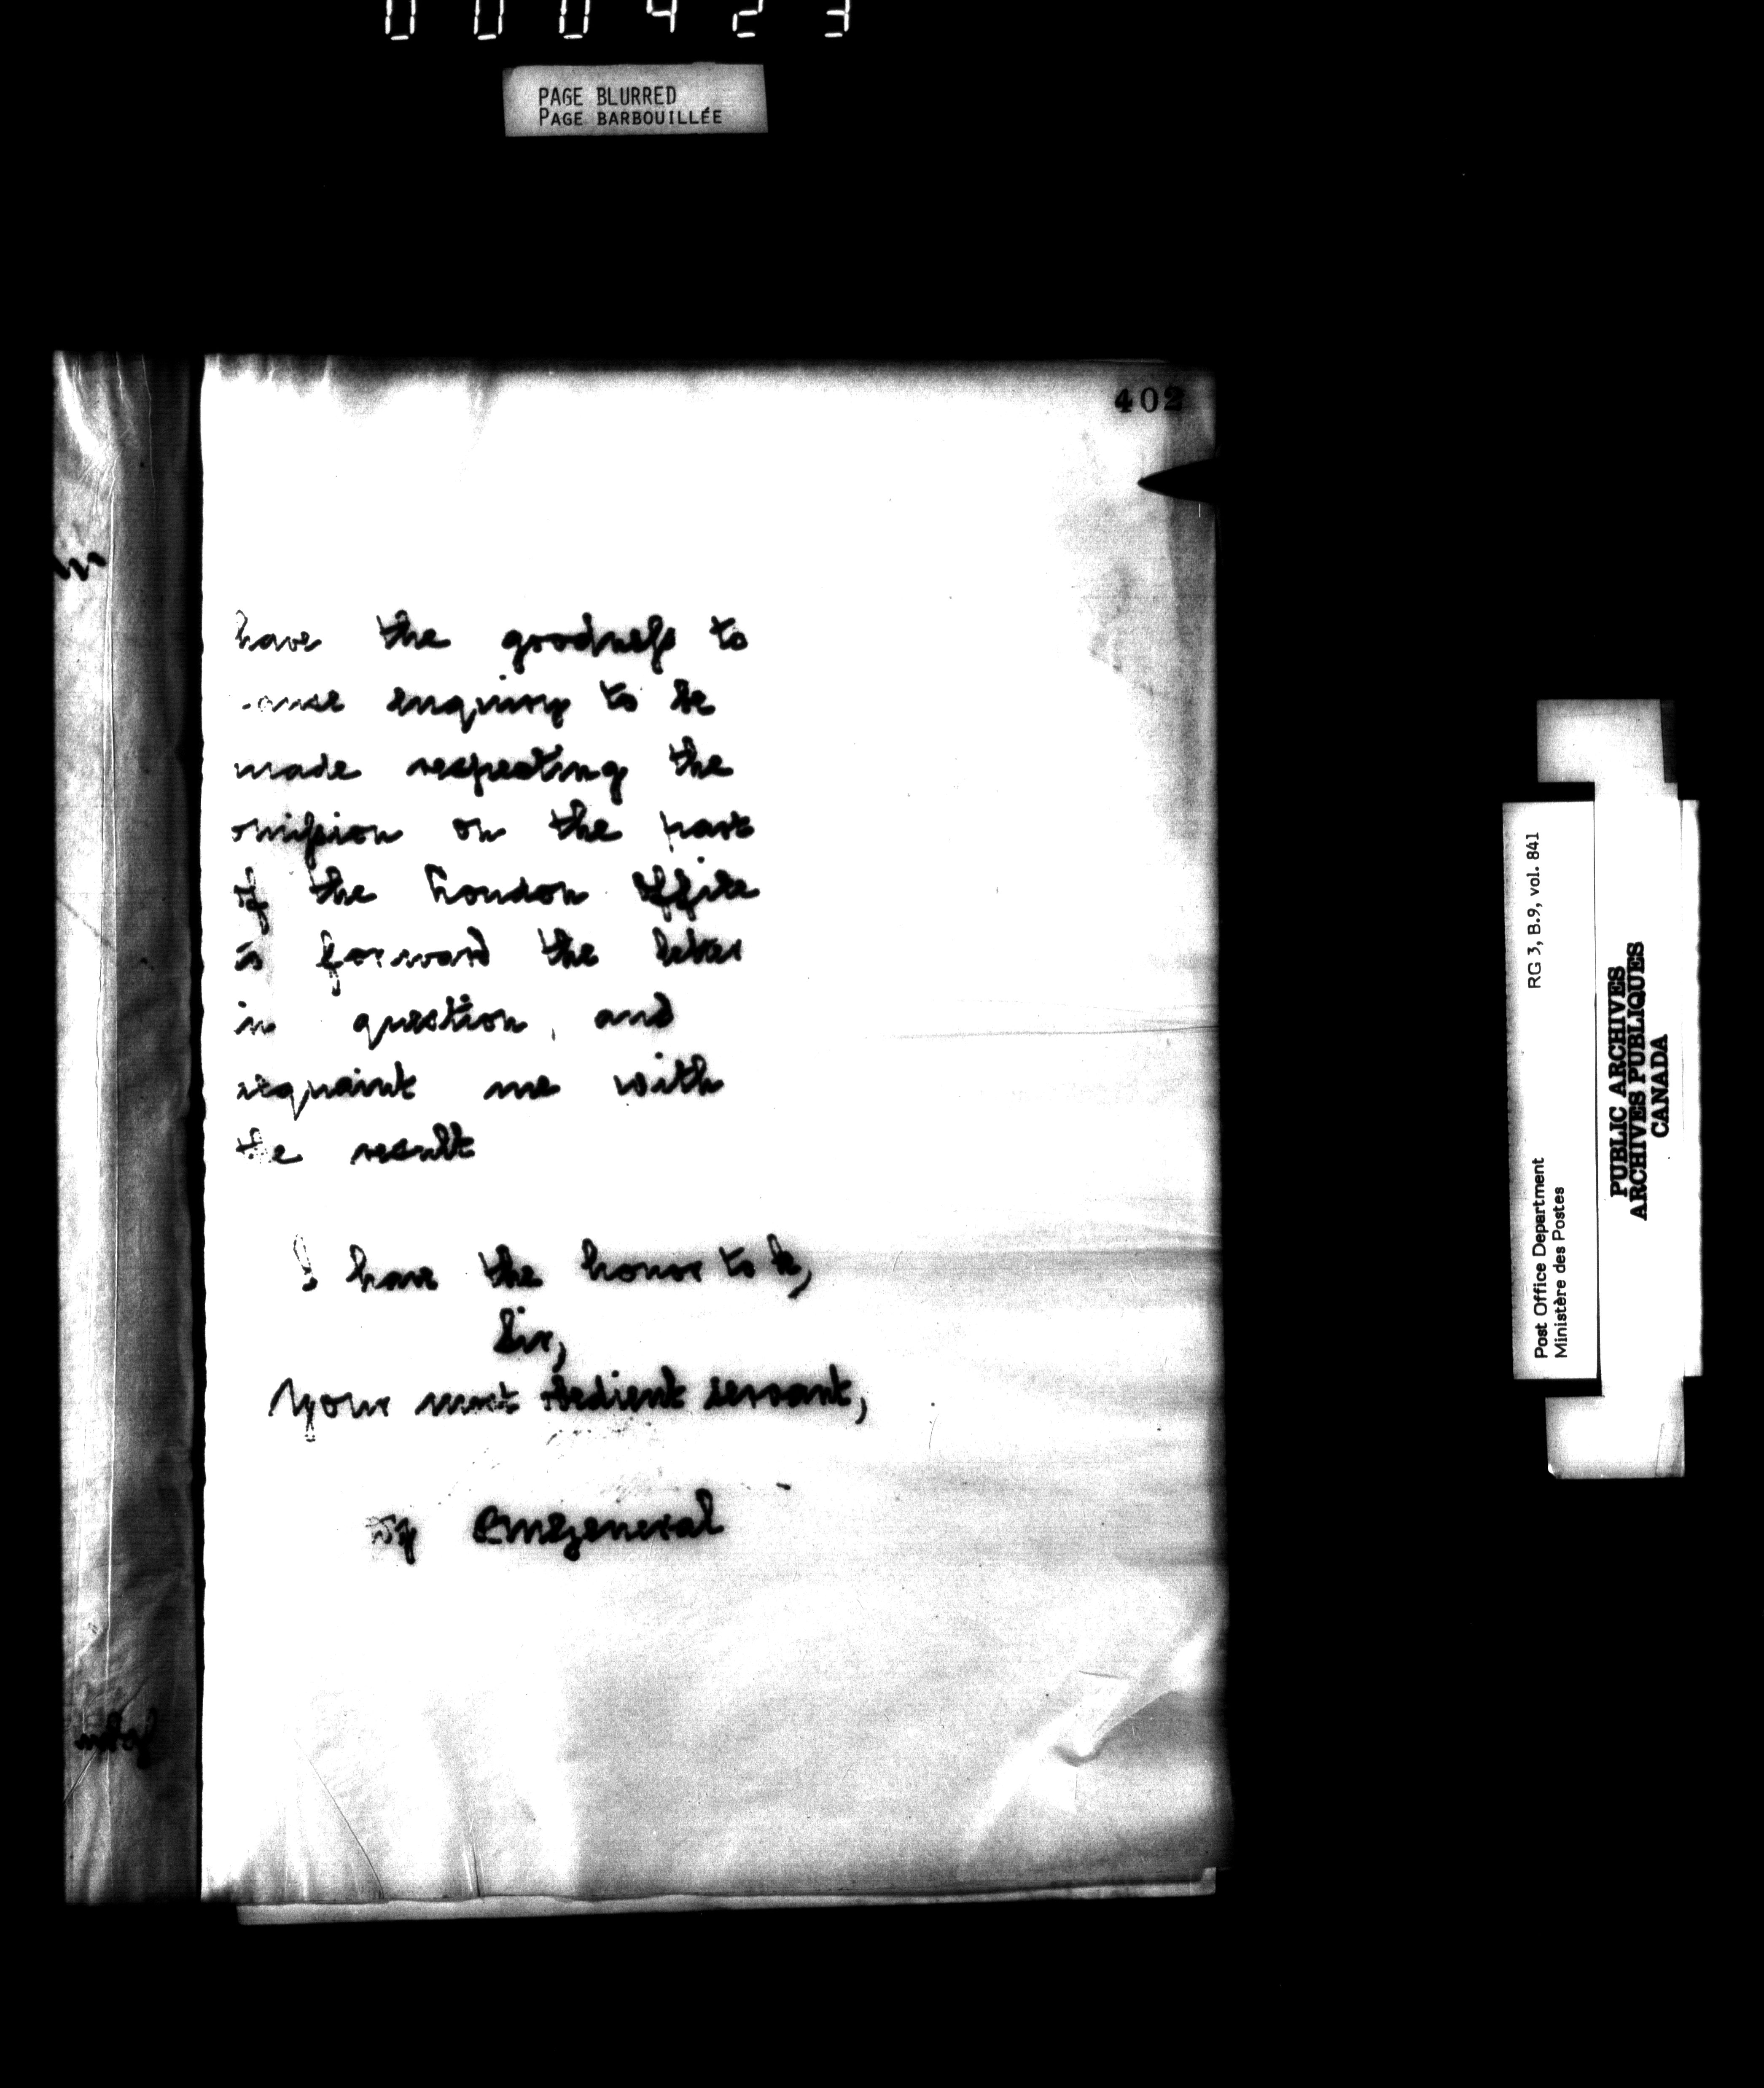 000423
PAGE BLURRED
PAGE BARBOUILLÉE
402
have the goodness to
cause enquiry to be
made respecting the
omission on the part
of the London Office
to forward the letter
in question, and
acquaint me with
the result
I have the honor to be,
Sir,
Your most obedient servant,
Pmrgeneral
RG 3, B.9, vol. 841
Post Office Department
Ministère des Postes
PUBLIC ARCHIVES
ARCHIVES PUBLIQUES
CANADA